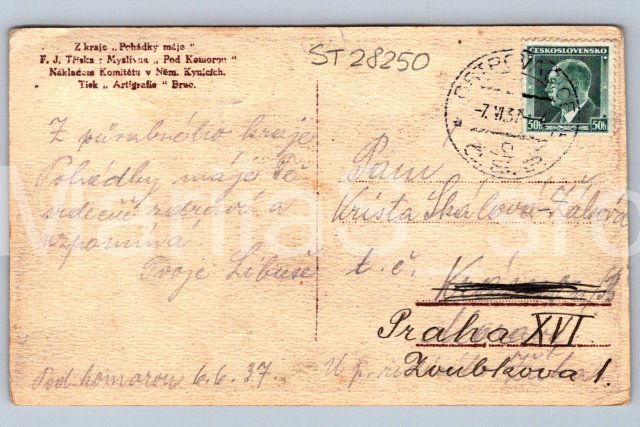 Z kraje „Pohádky máje"
F. J. Třiska: Myslivna „Pod Komorou"
Nákladem Komitétu v Něm. Kynicích.
Tisk „Artigrafie" Brno.
ST 28250
ČESKOSLOVENSKO
50h 50h
-7.VI.37
Z půvabného kraje
Pohádky máje Tě
srdečně zdraví a
vzpomíná
Tvoje Libuše
Pod komorou 6.6.37.
Paní
Krista Skalová-Žáková
t. č.
Praha XVI
Zoubkova 1.